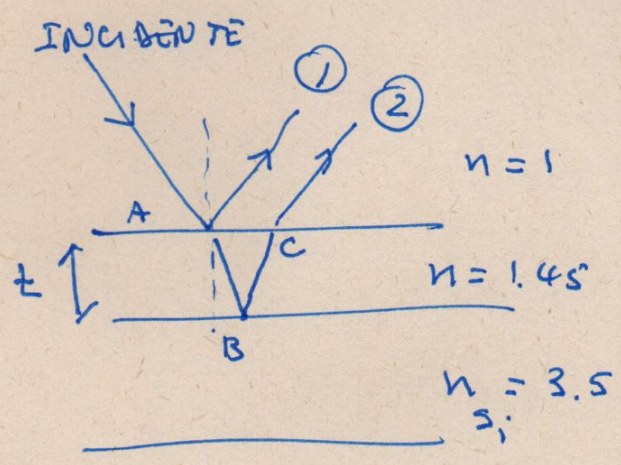 INCIDENTE
1
2
n = 1
A
C
t
n = 1.45
B
n = 3.5
Si